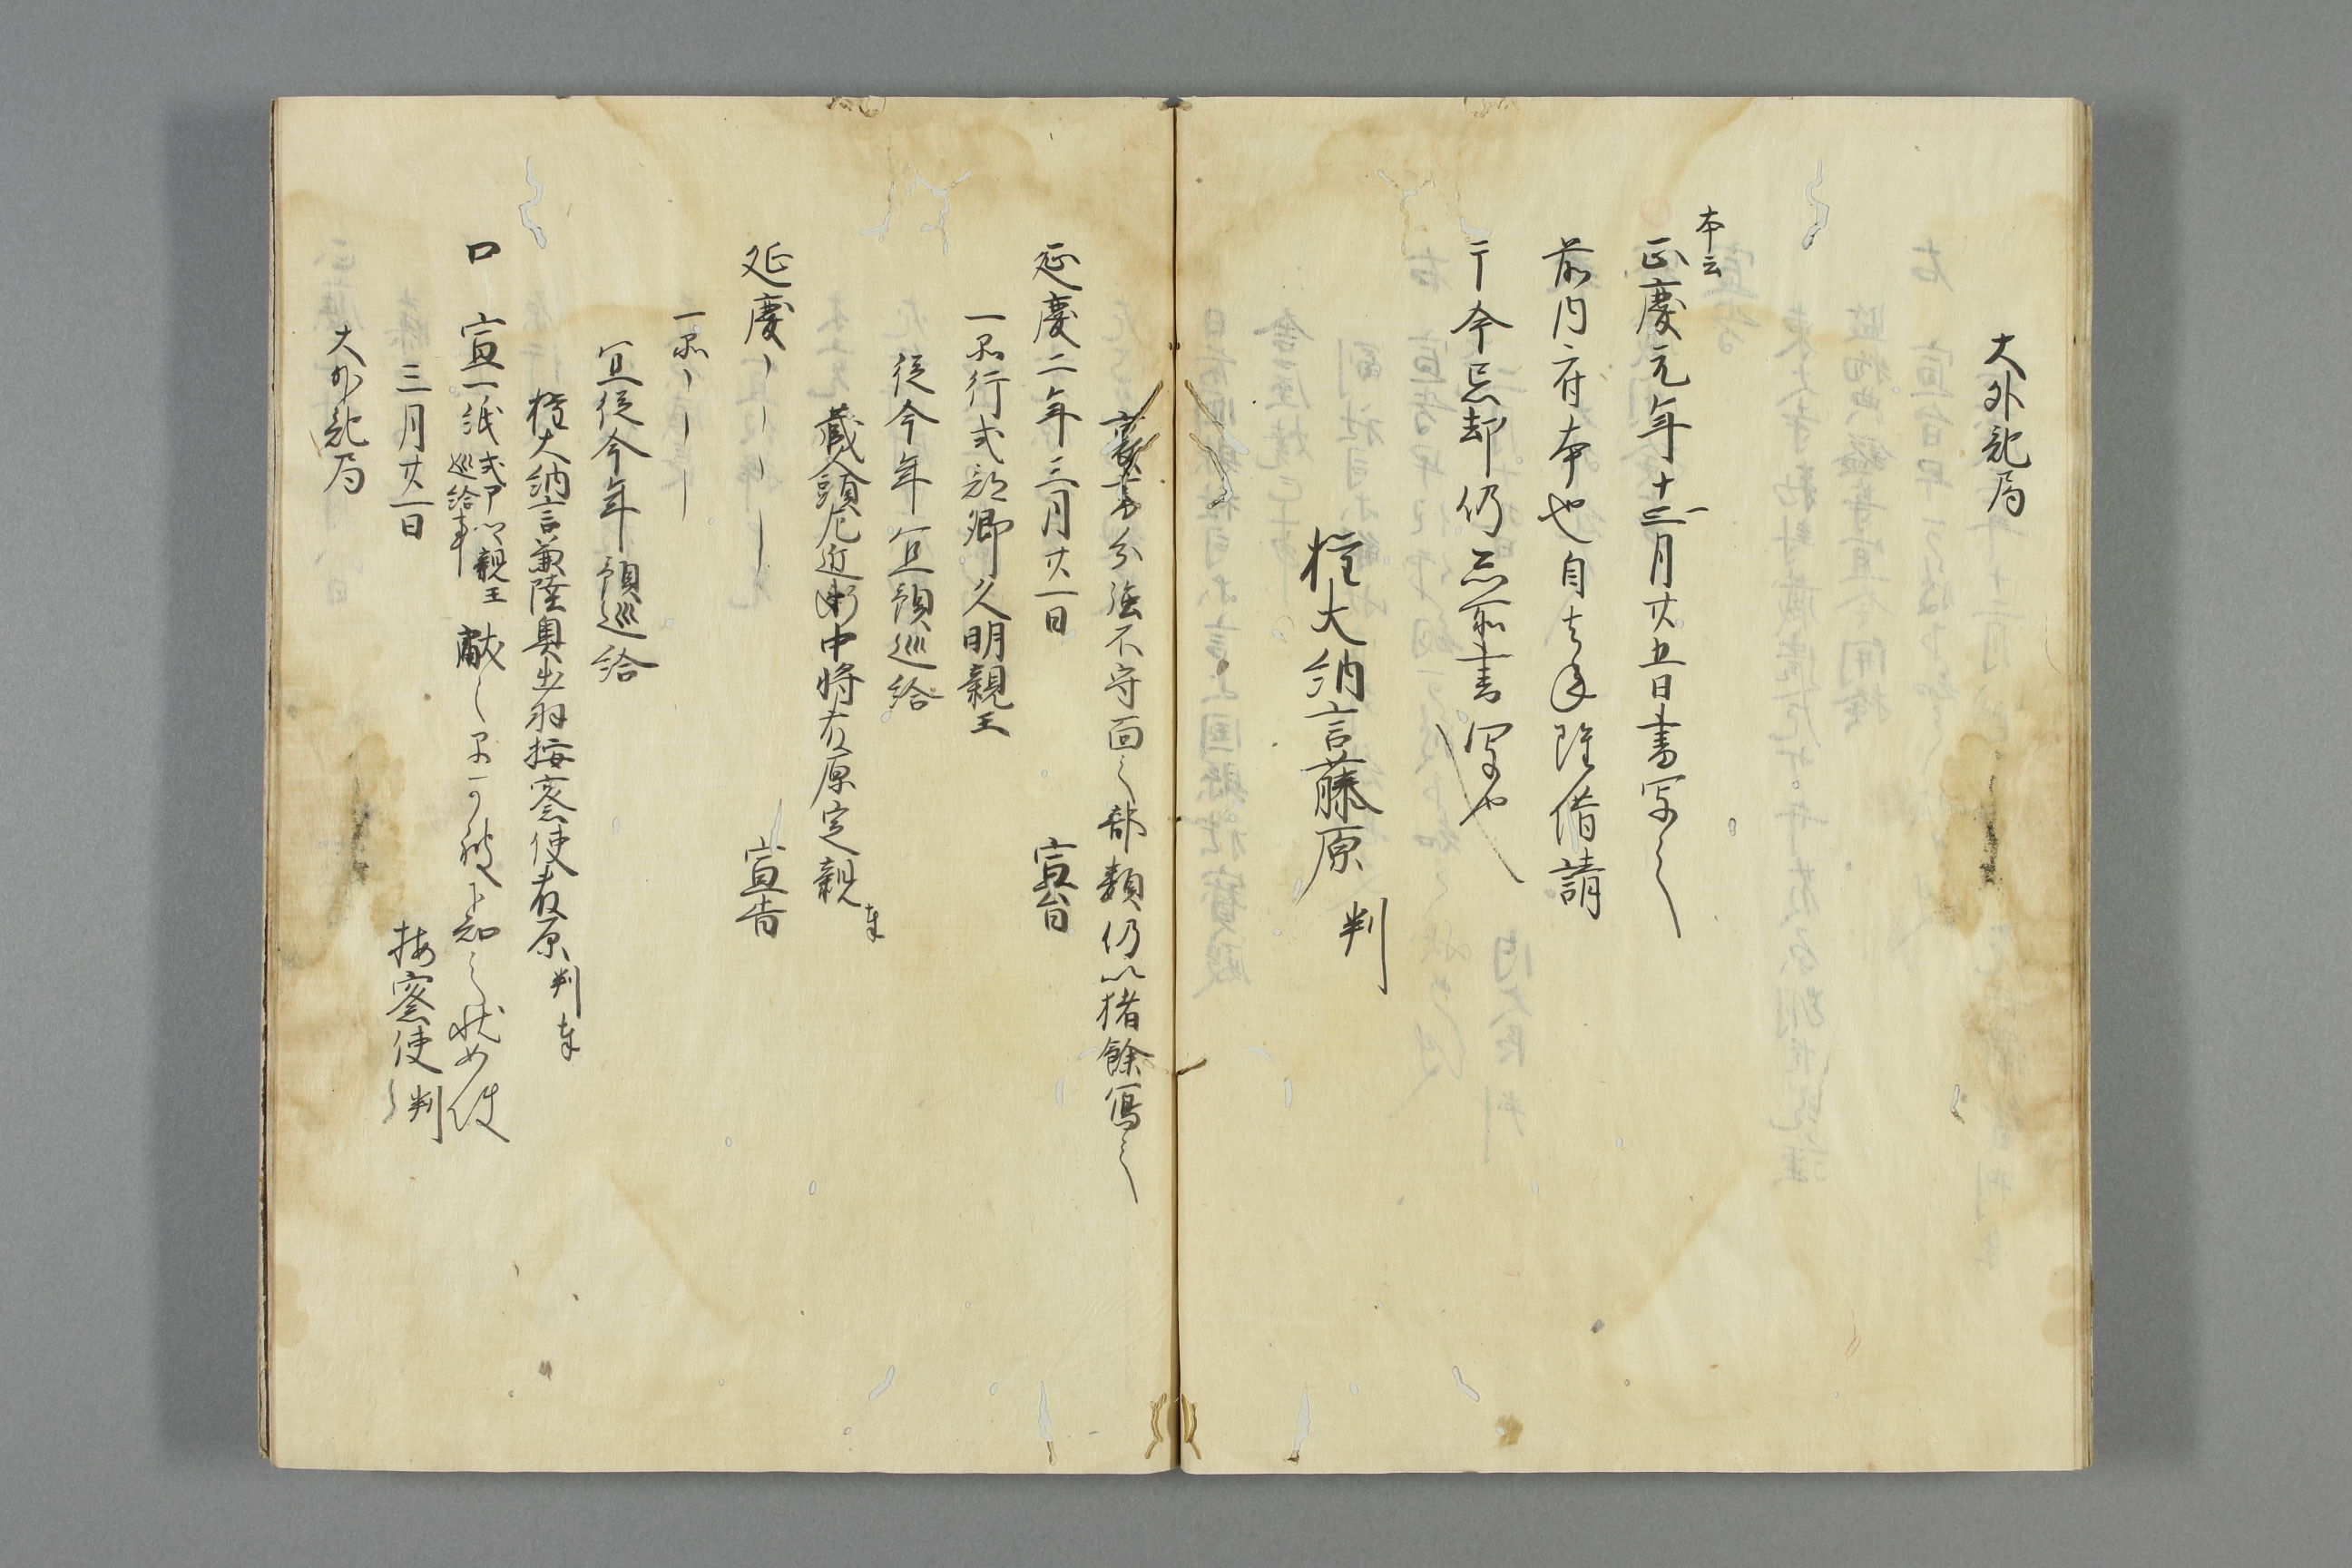 大外記局
本云
正慶元年十二月廿五日書写之
前内府本也自去年雖借請
于今忘却仍忩所書写也
権大納言藤原 判
分強不守面之部類仍以楮餘写之
延慶二年三月廿一日 宣旨
一品行式部卿久明親王
従今年宜預巡給
蔵人頭左近衛中将藤原定親 奉
延慶ーーーー 宣旨
一品ーーー
宜従今年預巡給
権大納言兼陸奥出羽按察使藤原 判 奉
口 宣一紙 式部卿親王 巡給事 献之早可被下知之状如件
三月廿一日 按察使 判
大外記局